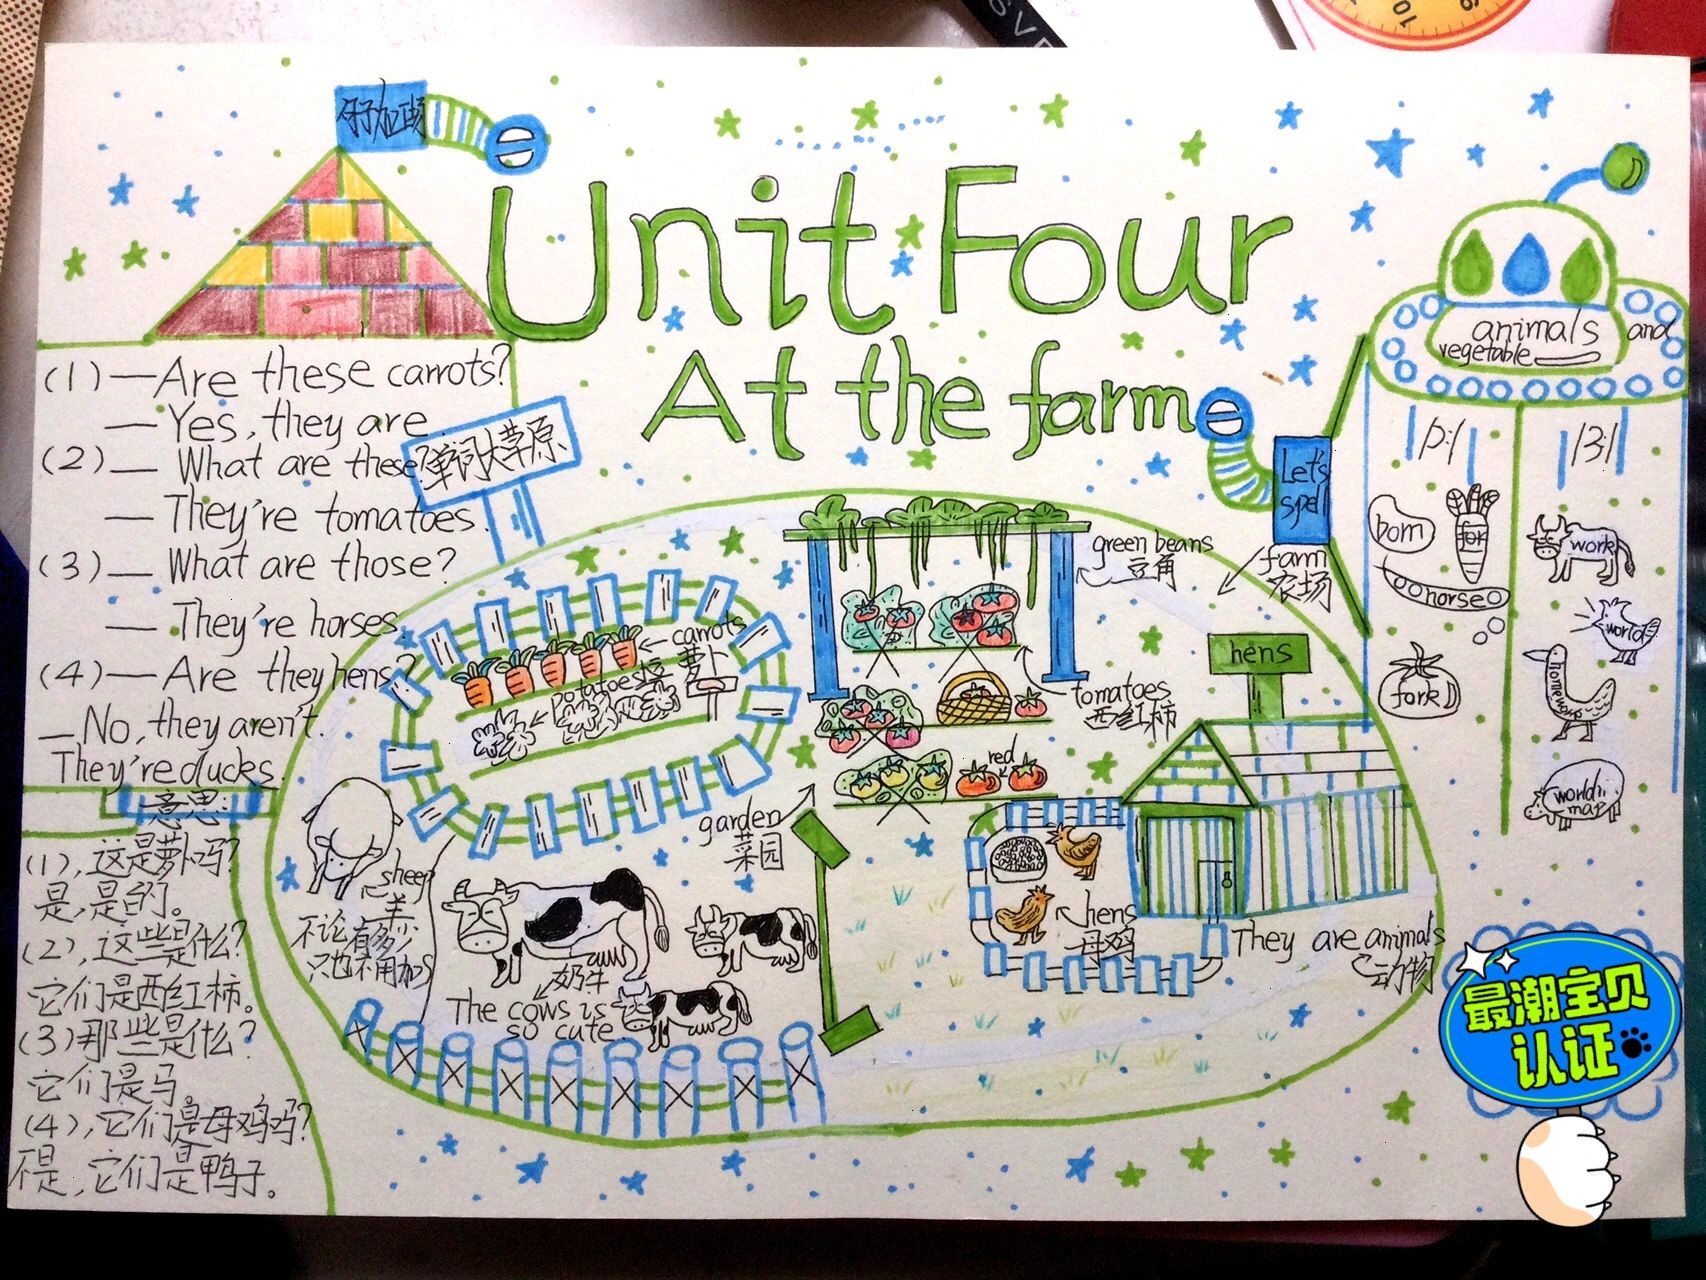 Unit Four
At the farm
(1)—Are these carrots?
—Yes, they are
(2)— What are these?
— They're tomatoes.
(3)— What are those?
— They're horses.
(4)—Are they hens?
—No, they aren't.
They're ducks.
意思:
(1),这是萝卜吗?
是,是的。
(2),这些是什么?
它们是西红柿。
(3)那些是什么?
它们是马。
(4),它们是母鸡吗?
不是,它们是鸭子。
单词大草原
carrots
萝卜
potatoes
green beans
豆角
farm
农场
tomatoes
西红柿
red
garden
菜园
hens
sheep
羊
不论有多少
只也不用加S
奶牛
The cows is
so cute
hens
母鸡
They are animals
动物
Let's
spell
animals and
vegetable
/ɔ:/
/ɜ:/
born
for
horse
fork
work
world
homework
world
map
最潮宝贝
认证